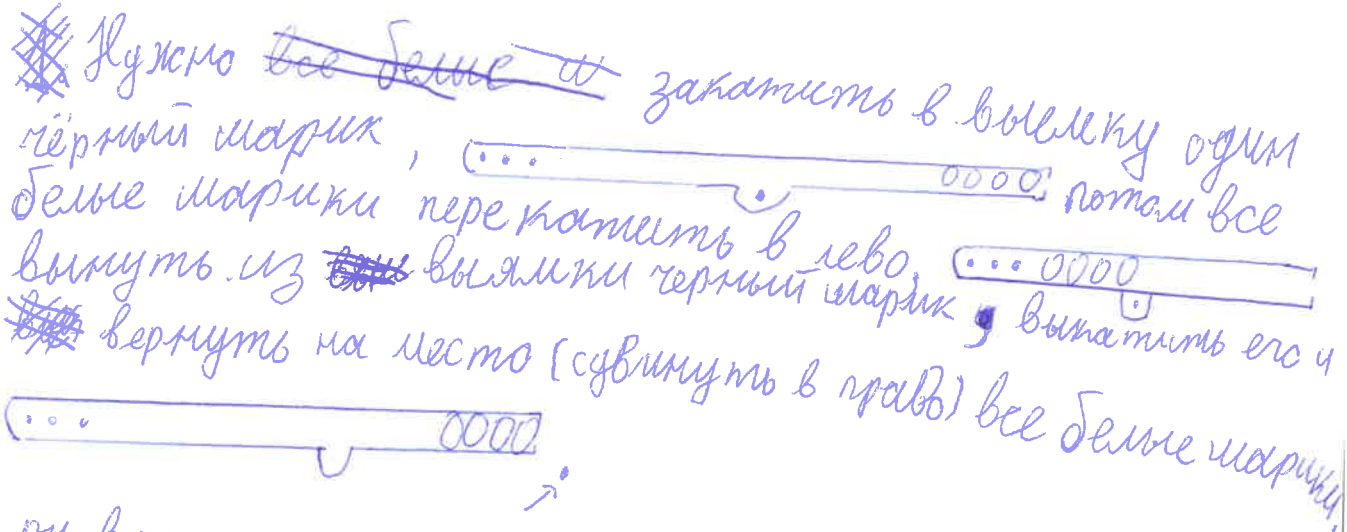 Нужно все белые ш закатить в выемку один
чёрный шарик, потом все
белые шарики перекатить в лево.
вынуть из выямки черный шарик, выкатить его и
вернуть на место (сдвинуть в право) все белые шарики,